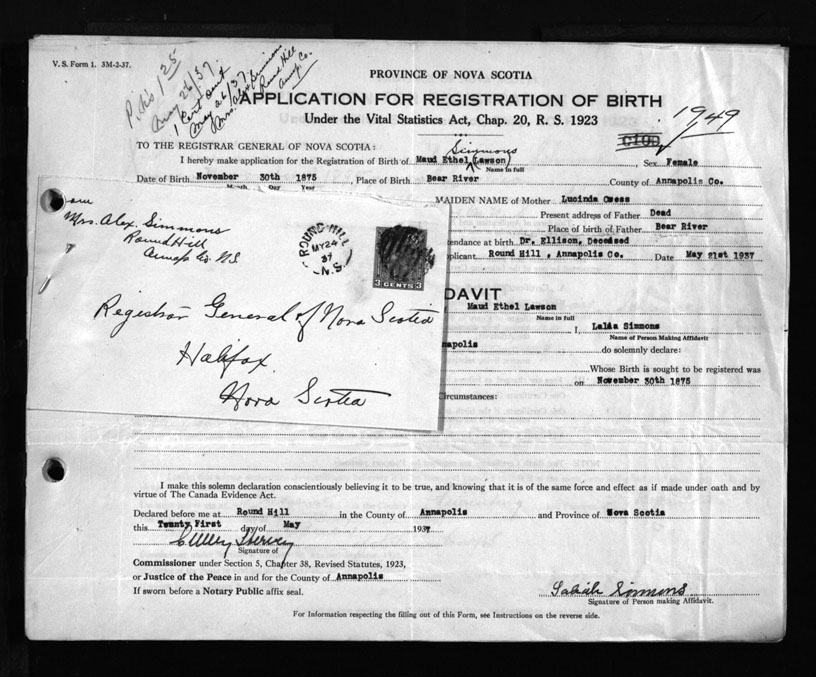 V. S. Form 1. 3M-2-37.
P. No 125
May 26/37.
1 Cert out
May 26/37.
Mrs. Alex Simmons
Round Hill
Annap. Co.
PROVINCE OF NOVA SCOTIA
APPLICATION FOR REGISTRATION OF BIRTH
Under the Vital Statistics Act, Chap. 20, R. S. 1923
1949
TO THE REGISTRAR GENERAL OF NOVA SCOTIA:
Simmons
I hereby make application for the Registration of Birth of Maud Ethel (Lawson) Sex Female
Name in full
Date of Birth November 30th 1875, Place of Birth Bear River County of Annapolis Co.
Month Day Year
MAIDEN NAME of Mother Lucinda Owess
Present address of Father Dead
Place of birth of Father Bear River
tendance at birth Dr. Ellison, Deceased
plicant Round Hill, Annapolis Co. Date May 21st 1937
Mrs. Alex. Simmons
Round Hill
Annap Co. N.S
ROUND HILL
MY 24
37
N.S.
3 CENTS 3
Registrar General of Nova Scotia
Halifax.
Nova Scotia
DAVIT
Maud Ethel Lawson
Name in full
I, Lalia Simmons
Name of Person Making Affidavit
nnapolis do solemnly declare:
Whose Birth is sought to be registered was
on November 30th 1875
Circumstances:
I make this solemn declaration conscientiously believing it to be true, and knowing that it is of the same force and effect as if made under oath and by
virtue of The Canada Evidence Act.
Declared before me at Round Hill in the County of Annapolis and Province of Nova Scotia
this Twenty First day of May 1937
Signature of
Commissioner under Section 5, Chapter 38, Revised Statutes, 1923,
or Justice of the Peace in and for the County of Annapolis
If sworn before a Notary Public affix seal.
Simmons
Signature of Person making Affidavit.
For Information respecting the filling out of this Form, see Instructions on the reverse side.